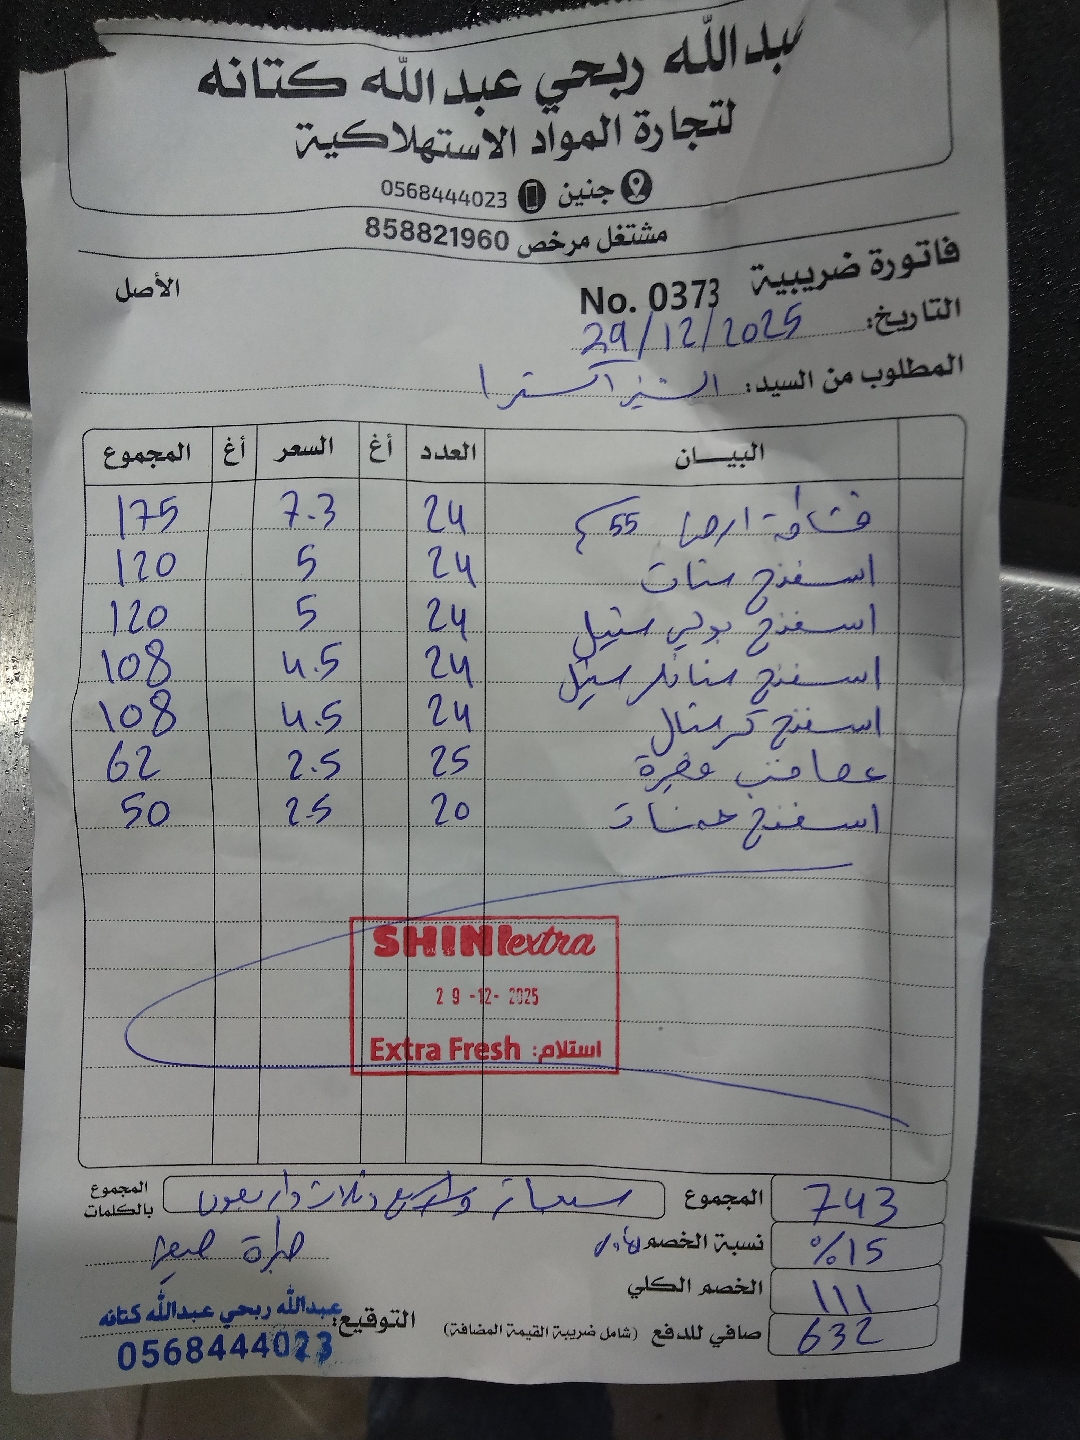 عبدالله ربحي عبدالله كتانه
لتجارة المواد الاستهلاكية
جنين 0568444023
مشتغل مرخص 858821960
فاتورة ضريبية No. 0373 الأصل
التاريخ: 29/12/2025
المطلوب من السيد: الشيني اكسترا
البيـــان العدد أغ السعر أغ المجموع
قشاطة ارض 55 24 7.3 175
اسفنج ستات 24 5 120
اسفنج بولي ستيل 24 5 120
اسفنج ستانلس ستيل 24 4.5 108
اسفنج كرستال 24 4.5 108
عصا 25 2.5 62
اسفنج 20 2.5 50
SHINI extra
29 -12- 2025
Extra Fresh استلام:
المجموع 743
المجموع بالكلمات سبعمائة وثلاث واربعون
نسبة الخصم %15
الخصم الكلي 111
صافي للدفع (شامل ضريبية القيمة المضافة) 632
التوقيع: عبدالله ربحي عبدالله كتانه
0568444023